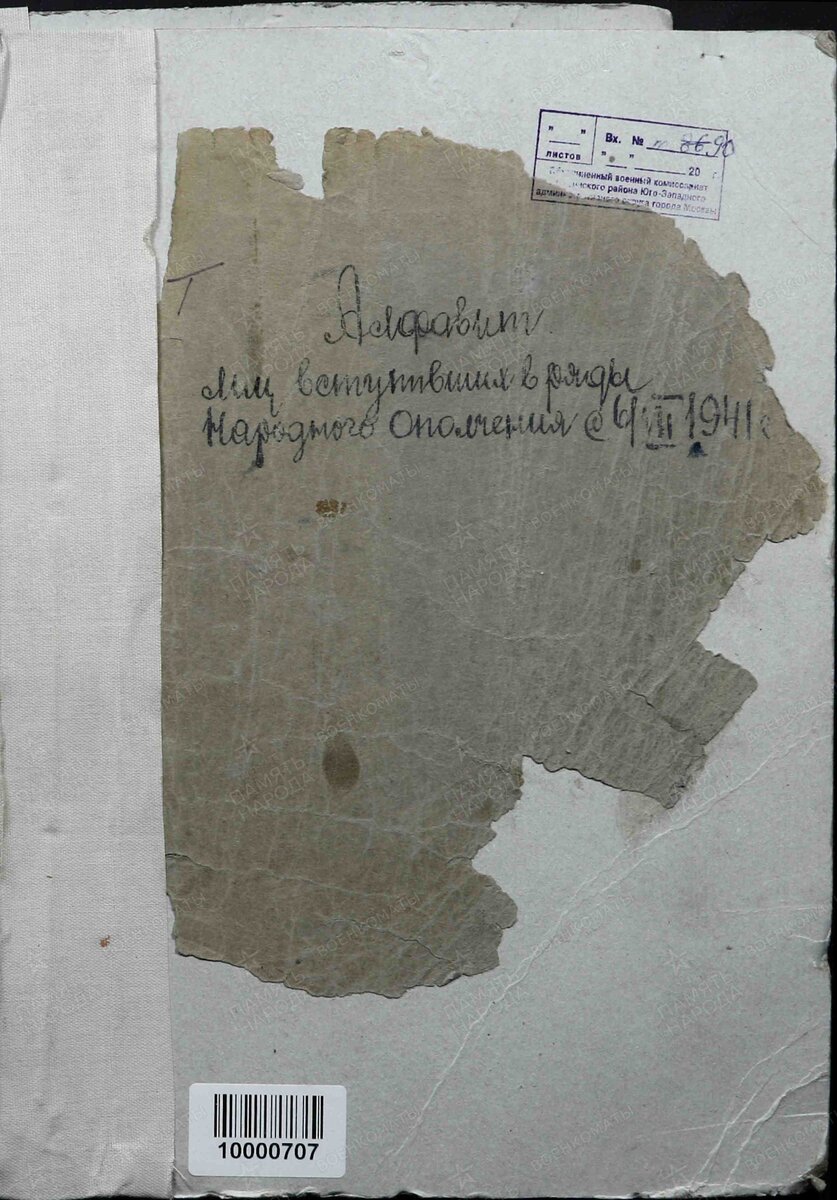 " " Вх. № 8690
листов " " 20 г.
военный комиссариат
района Юго-Западного
округа города Москвы
Т
Алфавит
лиц вступивших в ряды
Народного Ополчения с 6/VIII 1941 г
10000707
ПАМЯТЬ НАРОДА
ВОЕНКОМАТЫ